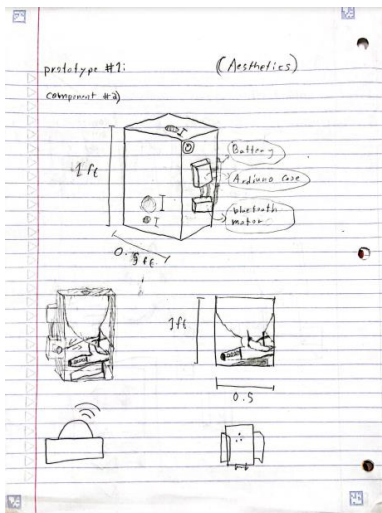 prototype #1:
(Aesthetics)
component #2)
1 ft
Battery
Arduino Case
bluetooth
motor
0.5 ft.
1ft
0.5